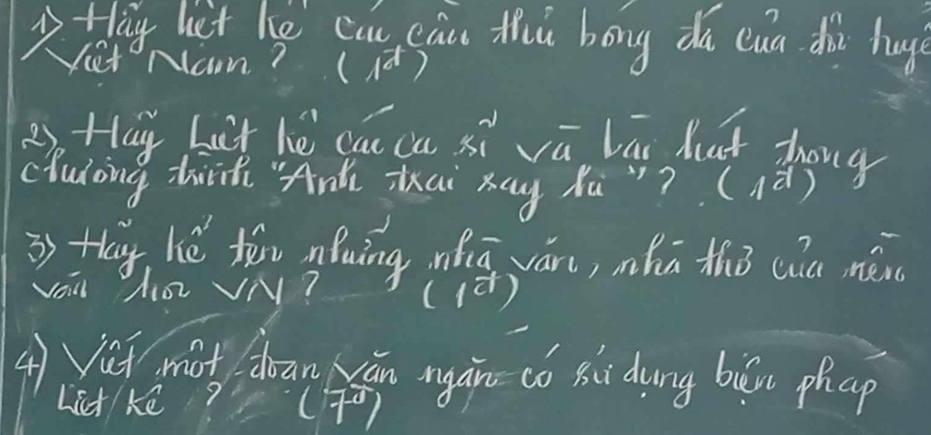 1) Hãy liệt kê các cầu thủ bóng đá của đội tuyể
Việt Nam? (1đ)
2) Hãy Liệt kê các ca sĩ và bài hát trong
chương trình "Anh trai say hi"? (1đ)
3) Hãy kể tên những nhà văn, nhà thơ của nền
văn học VN? (1đ)
4) Viết một đoạn văn ngắn có sử dụng biện pháp
Liệt kê? (7đ)